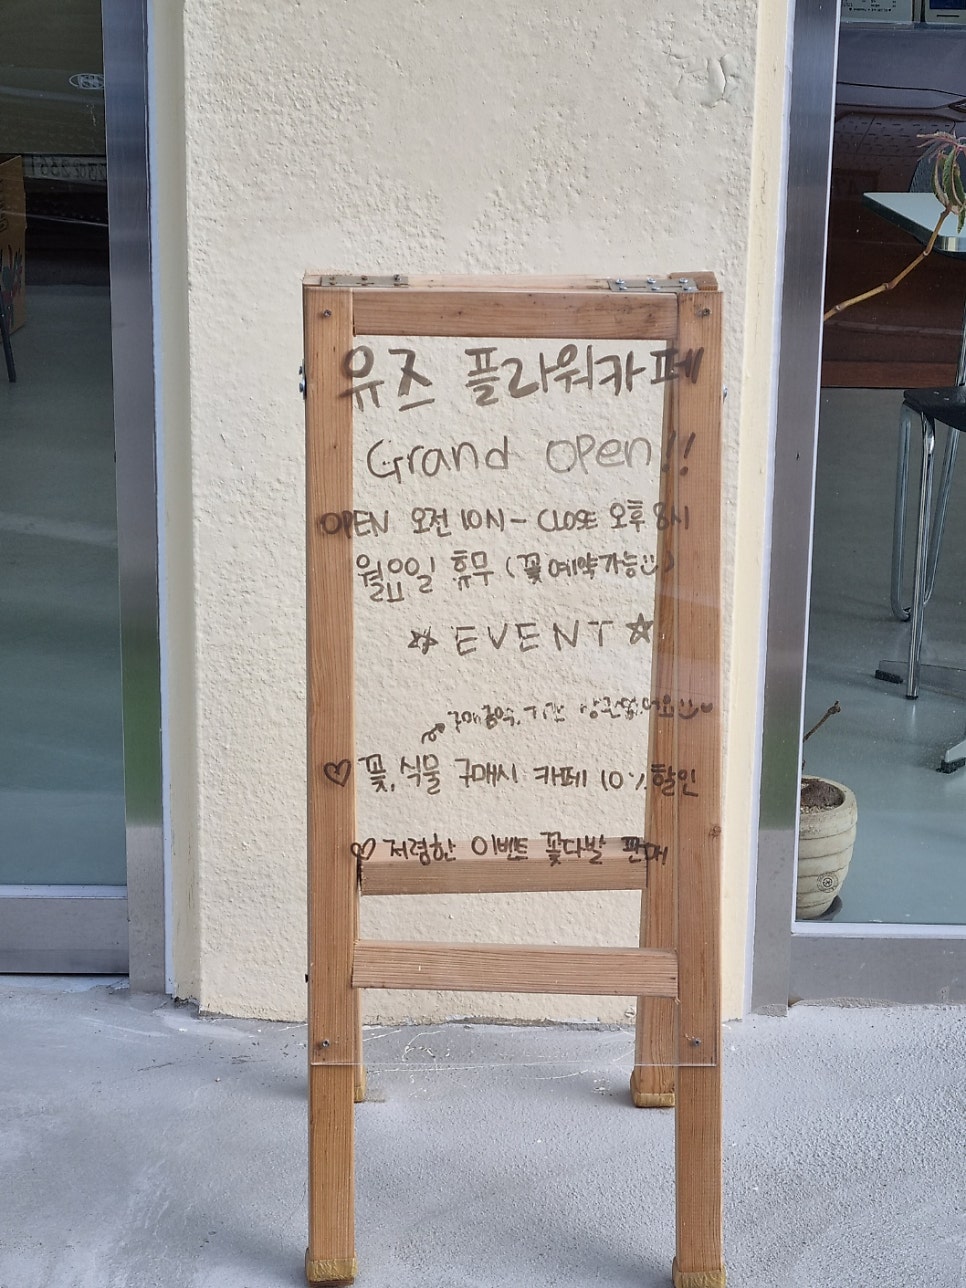 유즈 플라워카페
Grand open!!
OPEN 오전 10시 - CLOSE 오후 8시
월요일 휴무 (꽃 예약가능)
☆ EVENT ☆
구매금액, 기간 상관없어요
♡ 꽃, 식물 구매시 카페 10% 할인
♡ 저렴한 이벤트 꽃다발 판매